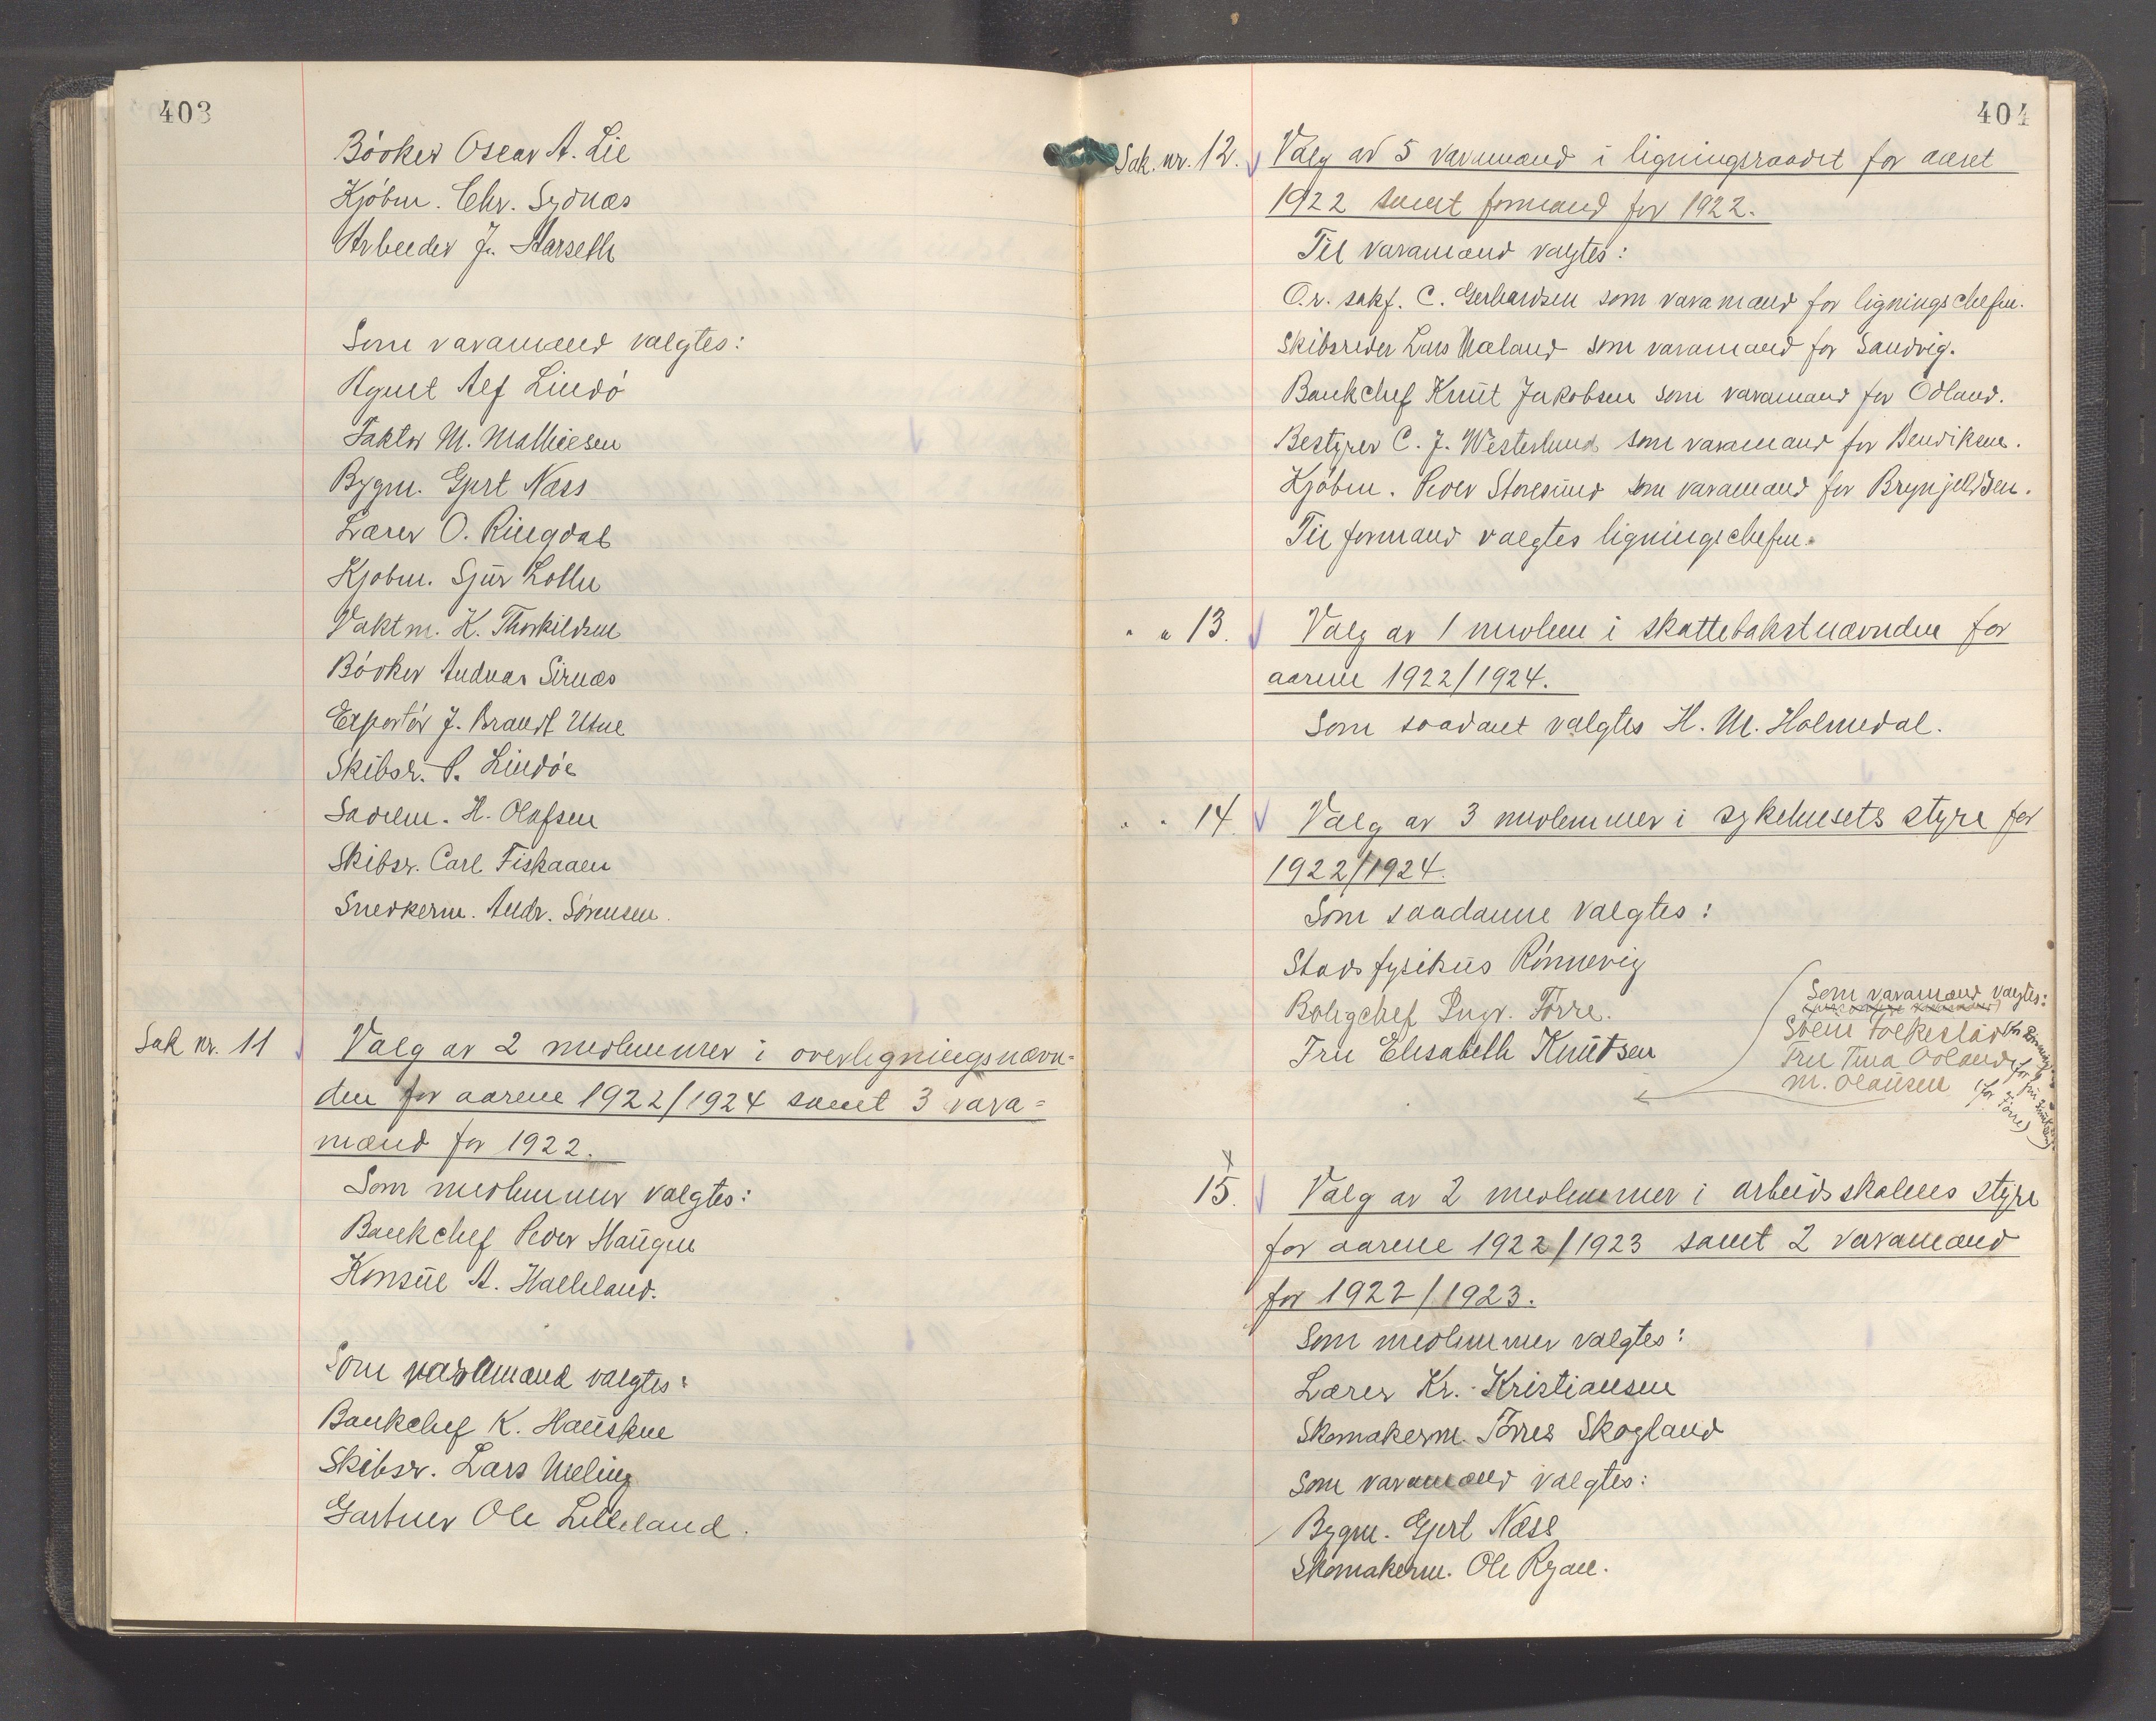 403
Bódker Oscar A. Lie
Kjóbm. Chr. Sydnæs
Arbeider J. Aarseth
Som varamænd valgtes:
Agent Alf Lindó
Faktor M. Mathiesen
Bygm. Gjert Næss
Lærer O. Ringdal
Kjobm. Sjur Lothe
Vaktm. K. Thorkildsen
Bódker Andreas Sirnæs
Exportór J. Brandt Utne
Skibsr. P. Lindóe
Sadelm. H. Olafsen
Skibsr. Carl Fiskaaen
Snedkerm. Andr. Sórensen.
Sak nr. 11 Valg av 2 medlemmer i overligningsnævn-
den for aarene 1922/1924 samt 3 vara=
mænd for 1922.
Som medlemmer valgtes:
Bankchef Peder Haugen
Konsul A. Halleland.
Som varamænd valgtes:
Bankchef K. Hausken
Skibsr. Lars Meling
Gartner Ole Lilleland.
404
Sak. nr. 12. Valg av 5 varamænd i ligningsraadet for aaret
1922 samt formand for 1922.
Til varamænd valgtes:
O.r. sakf. C. Gerhardsen som varamand for ligningschefen.
Skibsreder Lars Mæland som varamand for Sandvig.
Bankchef Knut Jakobsen som varamand for Ödland.
Bestyrer C. J. Westerlund som varamand for Bendiksen.
Kjóbm. Peder Storesund som varamand for Brynjeldsen.
Til formand valgtes ligningschefen.
" " 13. Valg av 1 medlem i skattetakstnævnden for
aarene 1922/1924.
Som saadant valgtes H. M. Holmedal.
" " 14. Valg av 3 medlemmer i sykehusets styre for
1922/1924.
Som saadanne valgtes:
Stadsfysikus Rónnevig
Boligchef Ingv. Tórre.
Fru Elisabeth Knutsen
Som varamænd valgtes:
Svein Folkestad
Fru Tina Ödland
M. Olausen (for Tórre)
15. Valg av 2 medlemmer i arbeidsskolens styre
for aarene 1922/1923 samt 2 varamænd
for 1922/1923.
Som medlemmer valgtes:
Lærer Kr. Kristiansen
Skomakerm. Tórres Skogland
Som varamænd valgtes:
Bygm. Gjert Næss
Skomakerm. Ole Ryan.